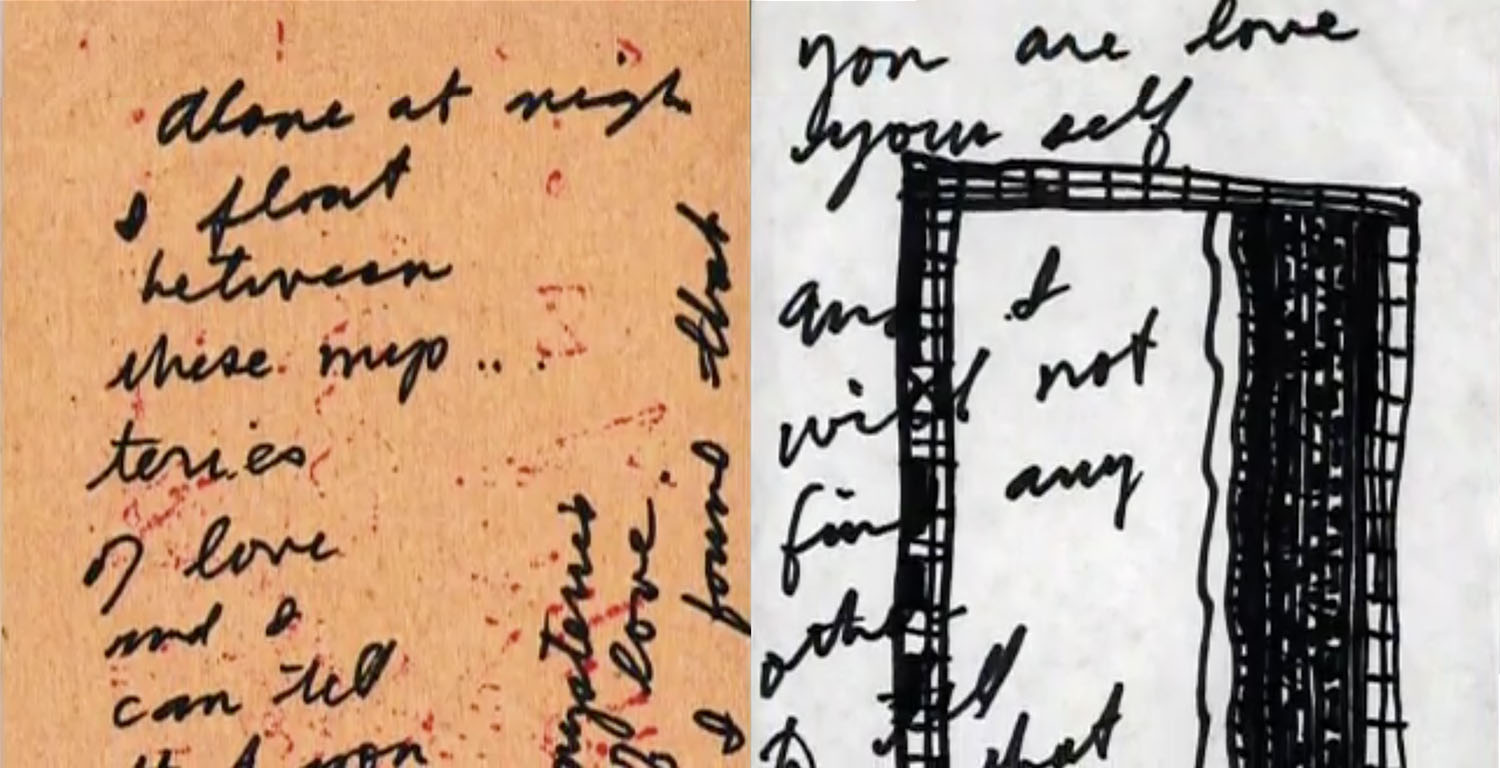 Alone at nigh
I float
between
these mys...
teries
of love
and I
can tell
I found that
mysterus
of love.
you are love
your self
and I
will not
find any
other
I tell
that